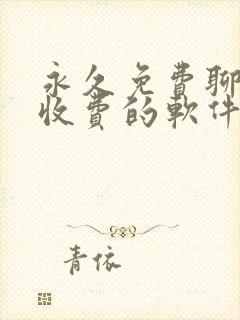 永久免費聊
收費的軟件
青依